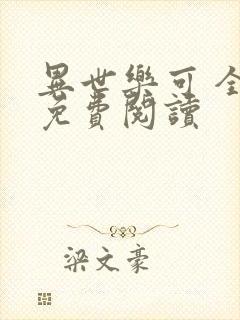 異世樂可 全
免費閱讀
梁文豪